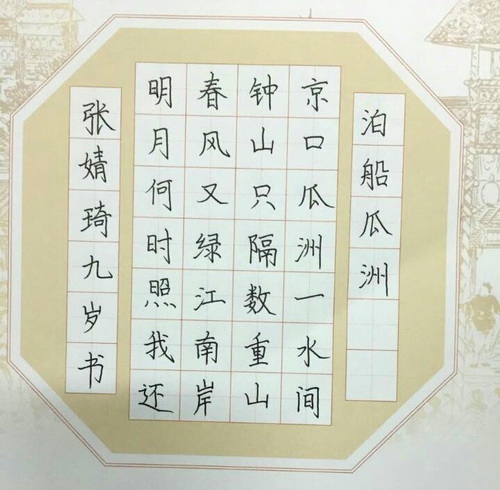 泊船瓜洲
京口瓜洲一水间
钟山只隔数重山
春风又绿江南岸
明月何时照我还
张婧琦九岁书